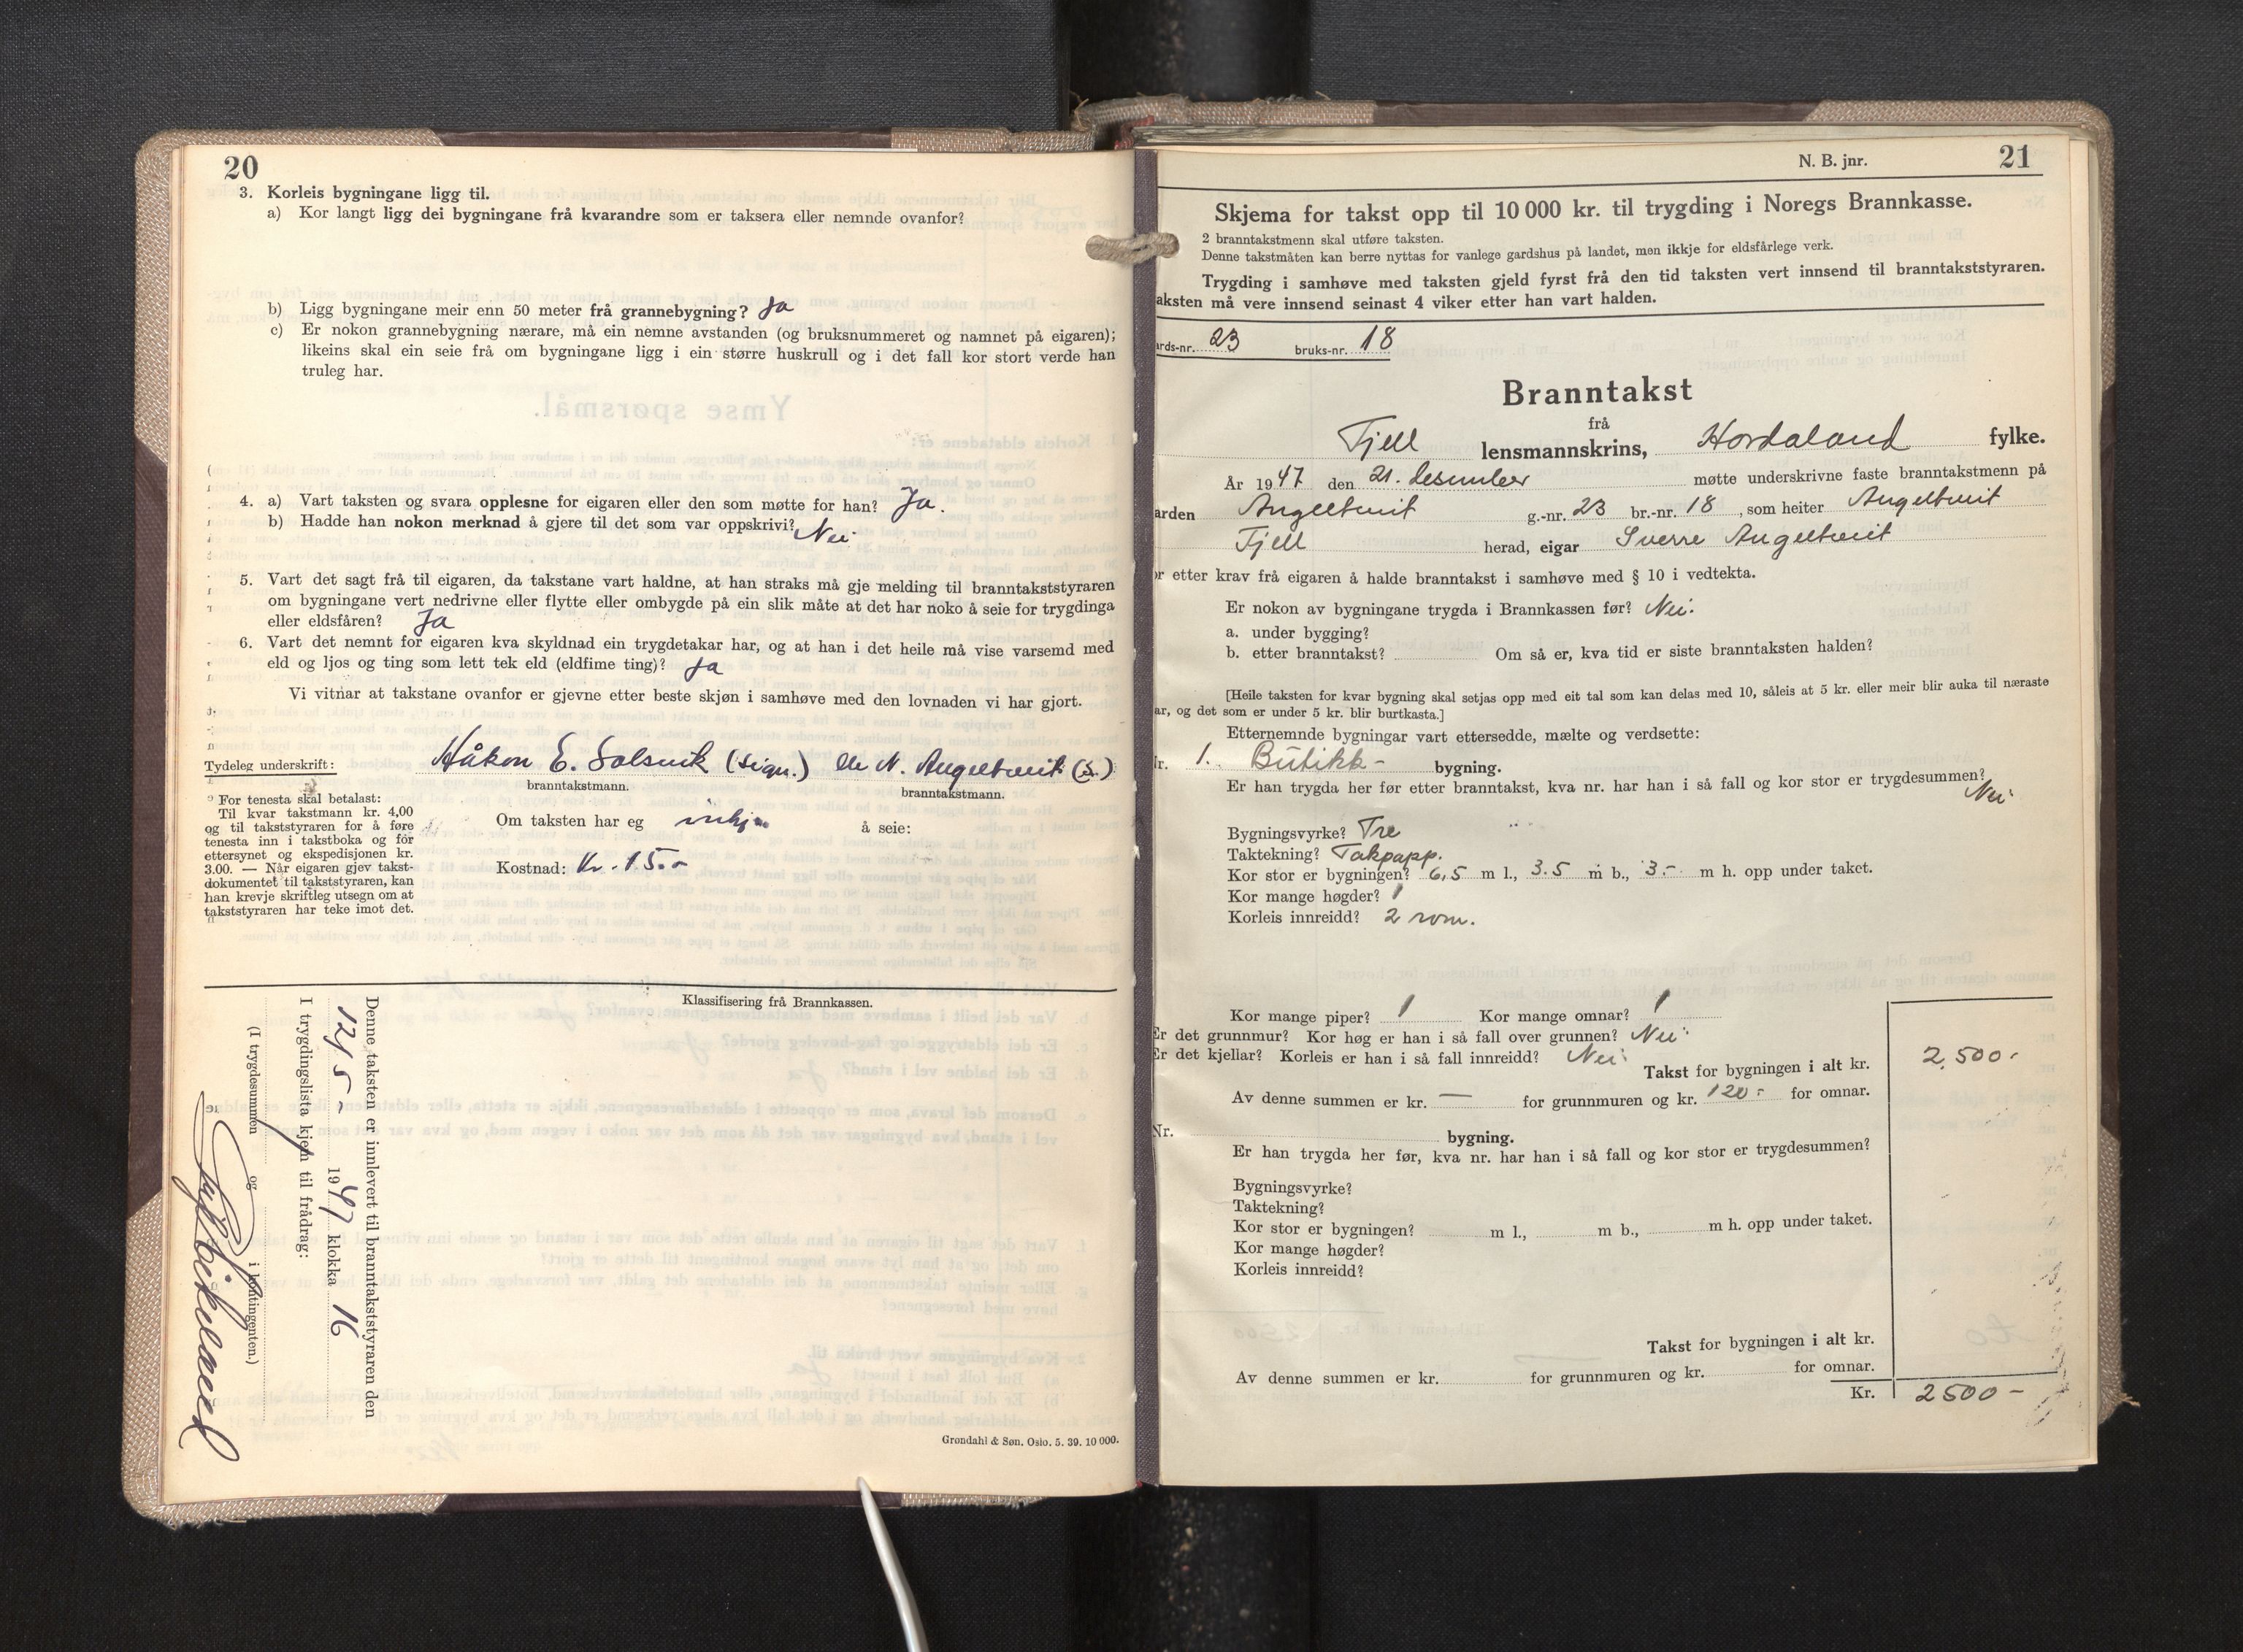 20
3. Korleis bygningane ligg til.
a) Kor langt ligg dei bygningane frå kvarandre som er taksera eller nemnde ovanfor?
b) Ligg bygningane meir enn 50 meter frå grannebygning? Ja
c) Er nokon grannebygning nærare, må ein nemne avstanden (og bruksnummeret og namnet på eigaren);
likeins skal ein seie frå om bygningane ligg i ein større huskrull og i det fall kor stort verde han
truleg har.
4. a) Vart taksten og svara opplesne for eigaren eller den som møtte for han? Ja.
b) Hadde han nokon merknad å gjere til det som var oppskrivi? Nei
5. Vart det sagt frå til eigaren, da takstane vart haldne, at han straks må gje melding til branntakststyraren
om bygningane vert nedrivne eller flytte eller ombygde på ein slik måte at det har noko å seie for trygdinga
eller eldsfåren? Ja
6. Vart det nemnt for eigaren kva skyldnad ein trygdetakar har, og at han i det heile må vise varsemd med
eld og ljos og ting som lett tek eld (eldfime ting)? Ja
Vi vitnar at takstane ovanfor er gjevne etter beste skjøn i samhøve med den lovnaden vi har gjort.
Tydeleg underskrift: Håkon E. Solsvik (sign.) N. Angeltveit (s.)
branntakstmann. branntakstmann.
For tenesta skal betalast:
Til kvar takstmann kr. 4,00
og til takststyraren for å føre
tenesta inn i takstboka og for
ettersynet og ekspedisjonen kr.
3.00. — Når eigaren gjev takst-
dokumentet til takststyraren, kan
han krevje skriftleg utsegn om at
takststyraren har teke imot det.
Om taksten har eg inkje å seie:
Kostnad: Kr. 15.-
Klassifisering frå Brannkassen.
Denne taksten er innlevert til branntakststyraren den
19 47 klokka 16
I trygdingslista kjem til frådrag:
(I trygdesummen og i kontingenten.)
Grøndahl & Søn. Oslo. 5. 39. 10 000.
N. B. jnr. 21
Skjema for takst opp til 10 000 kr. til trygding i Noregs Brannkasse.
2 branntakstmenn skal utføre taksten.
Denne takstmåten kan berre nyttas for vanlege gardshus på landet, men ikkje for eldsfårlege verk.
Trygding i samhøve med taksten gjeld fyrst frå den tid taksten vert innsend til branntakststyraren.
aksten må vere innsend seinast 4 viker etter han vart halden.
ards-nr. 23 bruks-nr. 18
Branntakst
frå
Fjell lensmannskrins, Hordaland fylke.
År 1947 den 21. desember møtte underskrivne faste branntakstmenn på
arden Angeltveit g.-nr. 23 br.-nr. 18, som heiter Angeltveit
Fjell herad, eigar Sverre Angeltveit
or etter krav frå eigaren å halde branntakst i samhøve med § 10 i vedtekta.
Er nokon av bygningane trygda i Brannkassen før? Nei.
a. under bygging?
b. etter branntakst? Om så er, kva tid er siste branntaksten halden?
[Heile taksten for kvar bygning skal setjas opp med eit tal som kan delas med 10, såleis at 5 kr. eller meir blir auka til næraste
ar, og det som er under 5 kr. blir burtkasta.]
Etternemnde bygningar vart ettersedde, mælte og verdsette:
r. 1. Butikk- bygning.
Er han trygda her før etter branntakst, kva nr. har han i så fall og kor stor er trygdesummen?
Nei
Bygningsvyrke? Tre
Taktekning? Takpapp.
Kor stor er bygningen? 6,5 m l., 3.5 m b., 3.- m h. opp under taket.
Kor mange høgder? 1
Korleis innreidd? 2 rom.
Kor mange piper? 1 Kor mange omnar? 1
Er det grunnmur? Kor høg er han i så fall over grunnen? Nei
Er det kjellar? Korleis er han i så fall innreidd? Nei
Takst for bygningen i alt kr. 2,500.-
Av denne summen er kr. — for grunnmuren og kr. 120.- for omnar.
Nr. bygning.
Er han trygda her før, kva nr. har han i så fall og kor stor er trygdesummen?
Bygningsvyrke?
Taktekning?
Kor stor er bygningen? m l., m b., m h. opp under taket.
Kor mange høgder?
Korleis innreidd?
Takst for bygningen i alt kr.
Av denne summen er kr. for grunnmuren og kr. for omnar.
Kr. 2500-